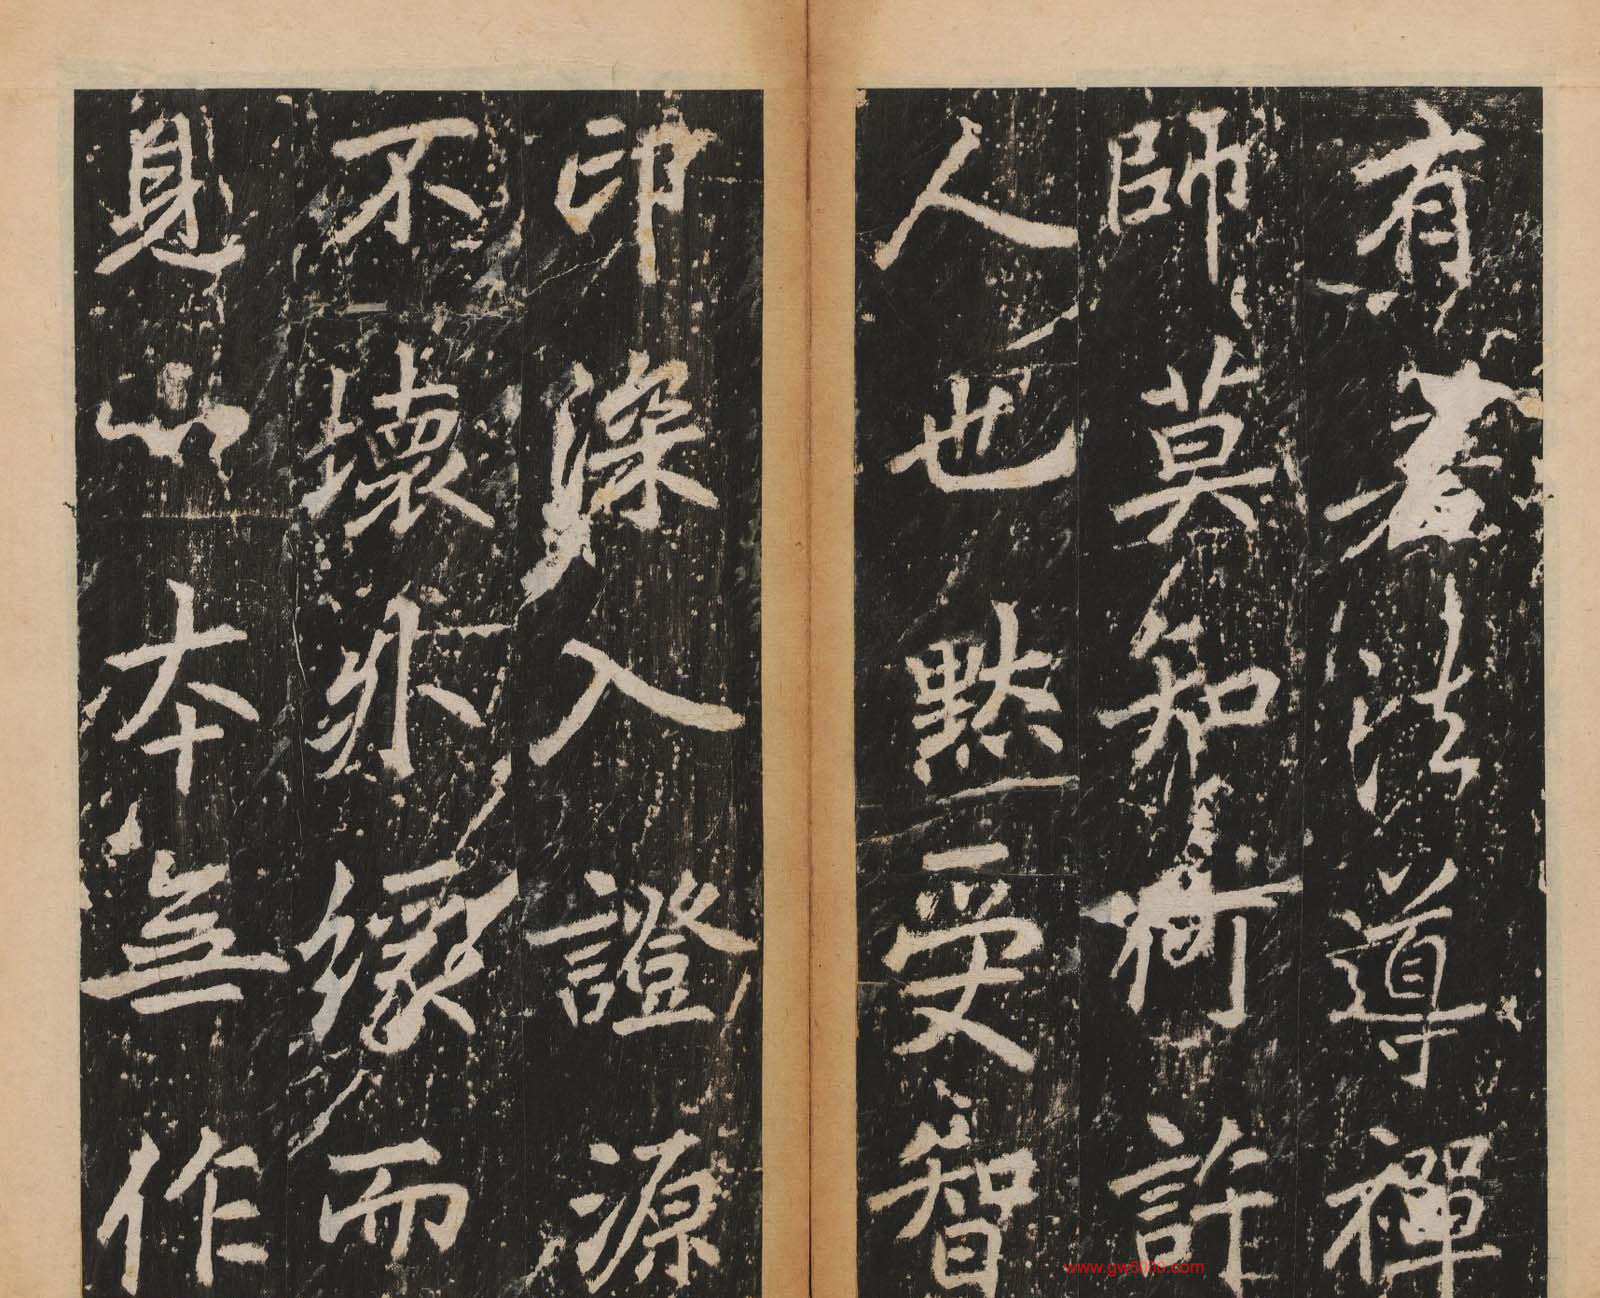 有蓋法導禪
師莫知何許
人也默受智
印深入證源
不壞外緣而
見心本無作
www.gw5000.com